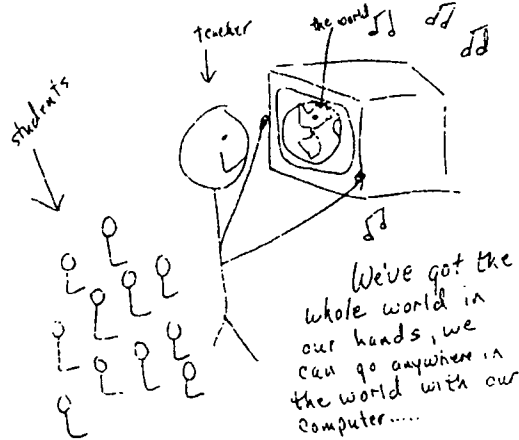 the world
teacher
students
We've got the
whole world in
our hands, we
can go anywhere in
the world with our
computer.....